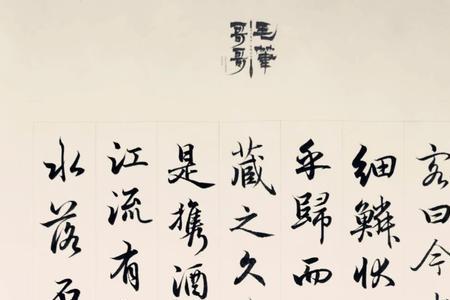 毛筆
哥哥
客曰今
細鱗狀
乎歸而
藏之久
是携酒
江流有
水落石